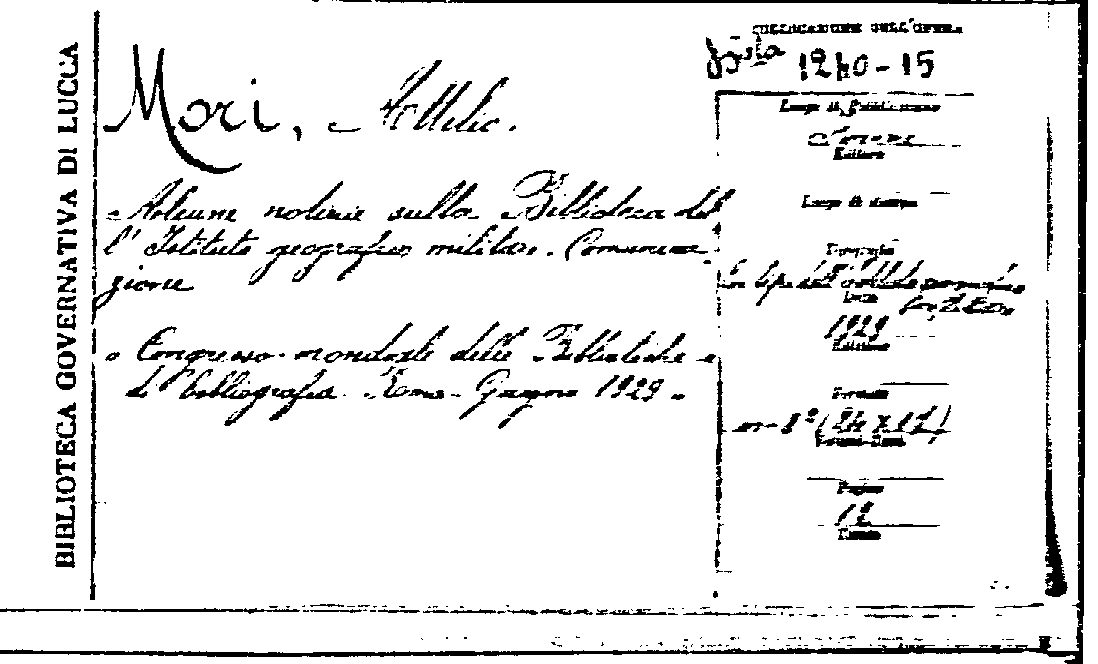 BIBLIOTECA GOVERNATIVA DI LUCCA
Mori, Attilio.
Alcune notizie sulla Biblioteca del
l'Istituto geografico militare. Comunica
zione
o Congresso mondiale delle Biblioteche e
di bibliografia. Roma - Giugno 1929.
COLLOCAZIONE DELL'OPERA
busta 1240-15
Luogo di Pubblicazione
Firenze
Editore
Luogo di stampa
Tipografia
tip. dell'
1929
Edizione
Formato
in-8º (24x17)
Pagine
12